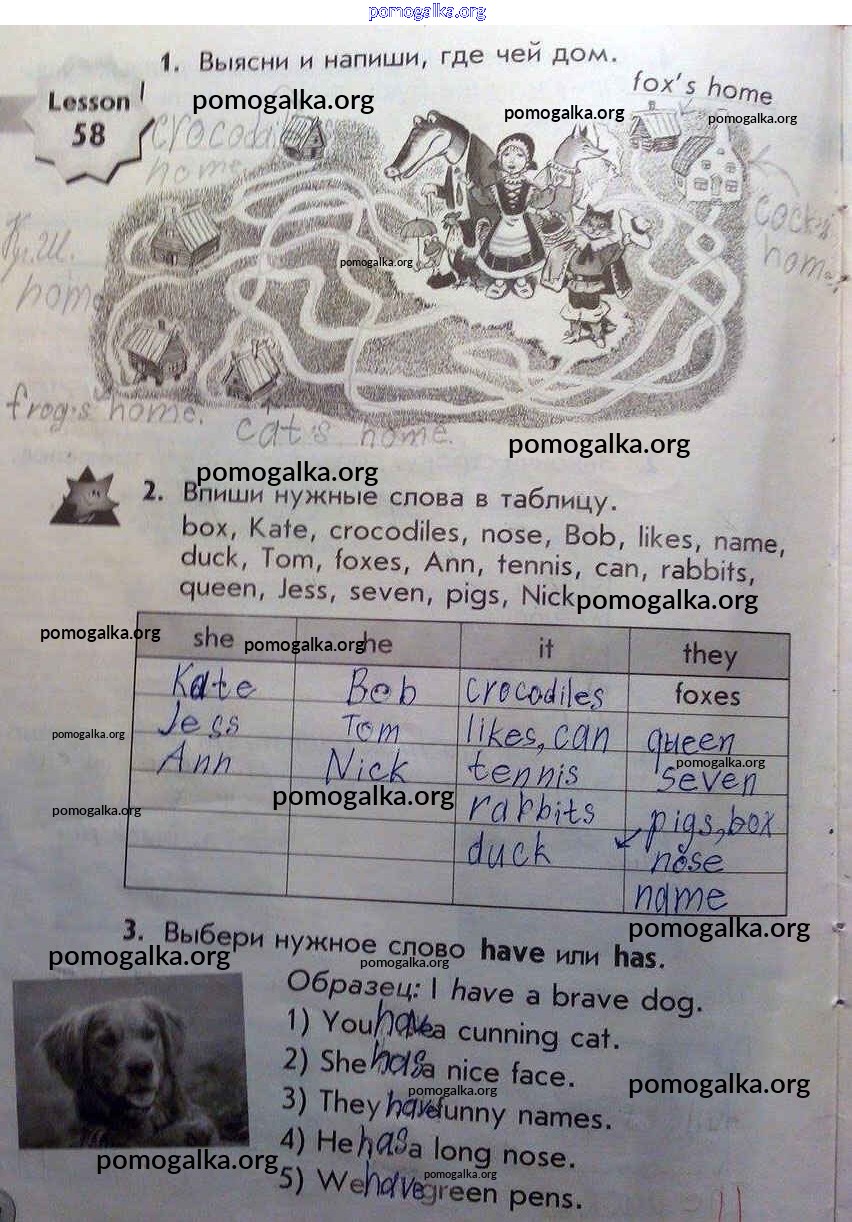 pomogalka.org
1. Выясни и напиши, где чей дом.
fox's home
Lesson
58
pomogalka.org
pomogalka.org
pomogalka.org
crocodile's
home
cock's
home
pomogalka.org
home
frog's home.
cat's home.
pomogalka.org
pomogalka.org
2. Впиши нужные слова в таблицу.
box, Kate, crocodiles, nose, Bob, likes, name,
duck, Tom, foxes, Ann, tennis, can, rabbits,
queen, Jess, seven, pigs, Nick
pomogalka.org
pomogalka.org
pomogalka.org
she he it they
Kate Bob crocodiles foxes
Jess Tom likes, can queen
pomogalka.org
pomogalka.org
Ann Nick tennis seven
pomogalka.org
pomogalka.org
rabbits pigs, box
duck nose
name
pomogalka.org
3. Выбери нужное слово have или has.
pomogalka.org
pomogalka.org
Образец: I have a brave dog.
1) You have a cunning cat.
2) She has a nice face.
pomogalka.org
pomogalka.org
3) They have funny names.
4) He has a long nose.
pomogalka.org
pomogalka.org
5) We have green pens.